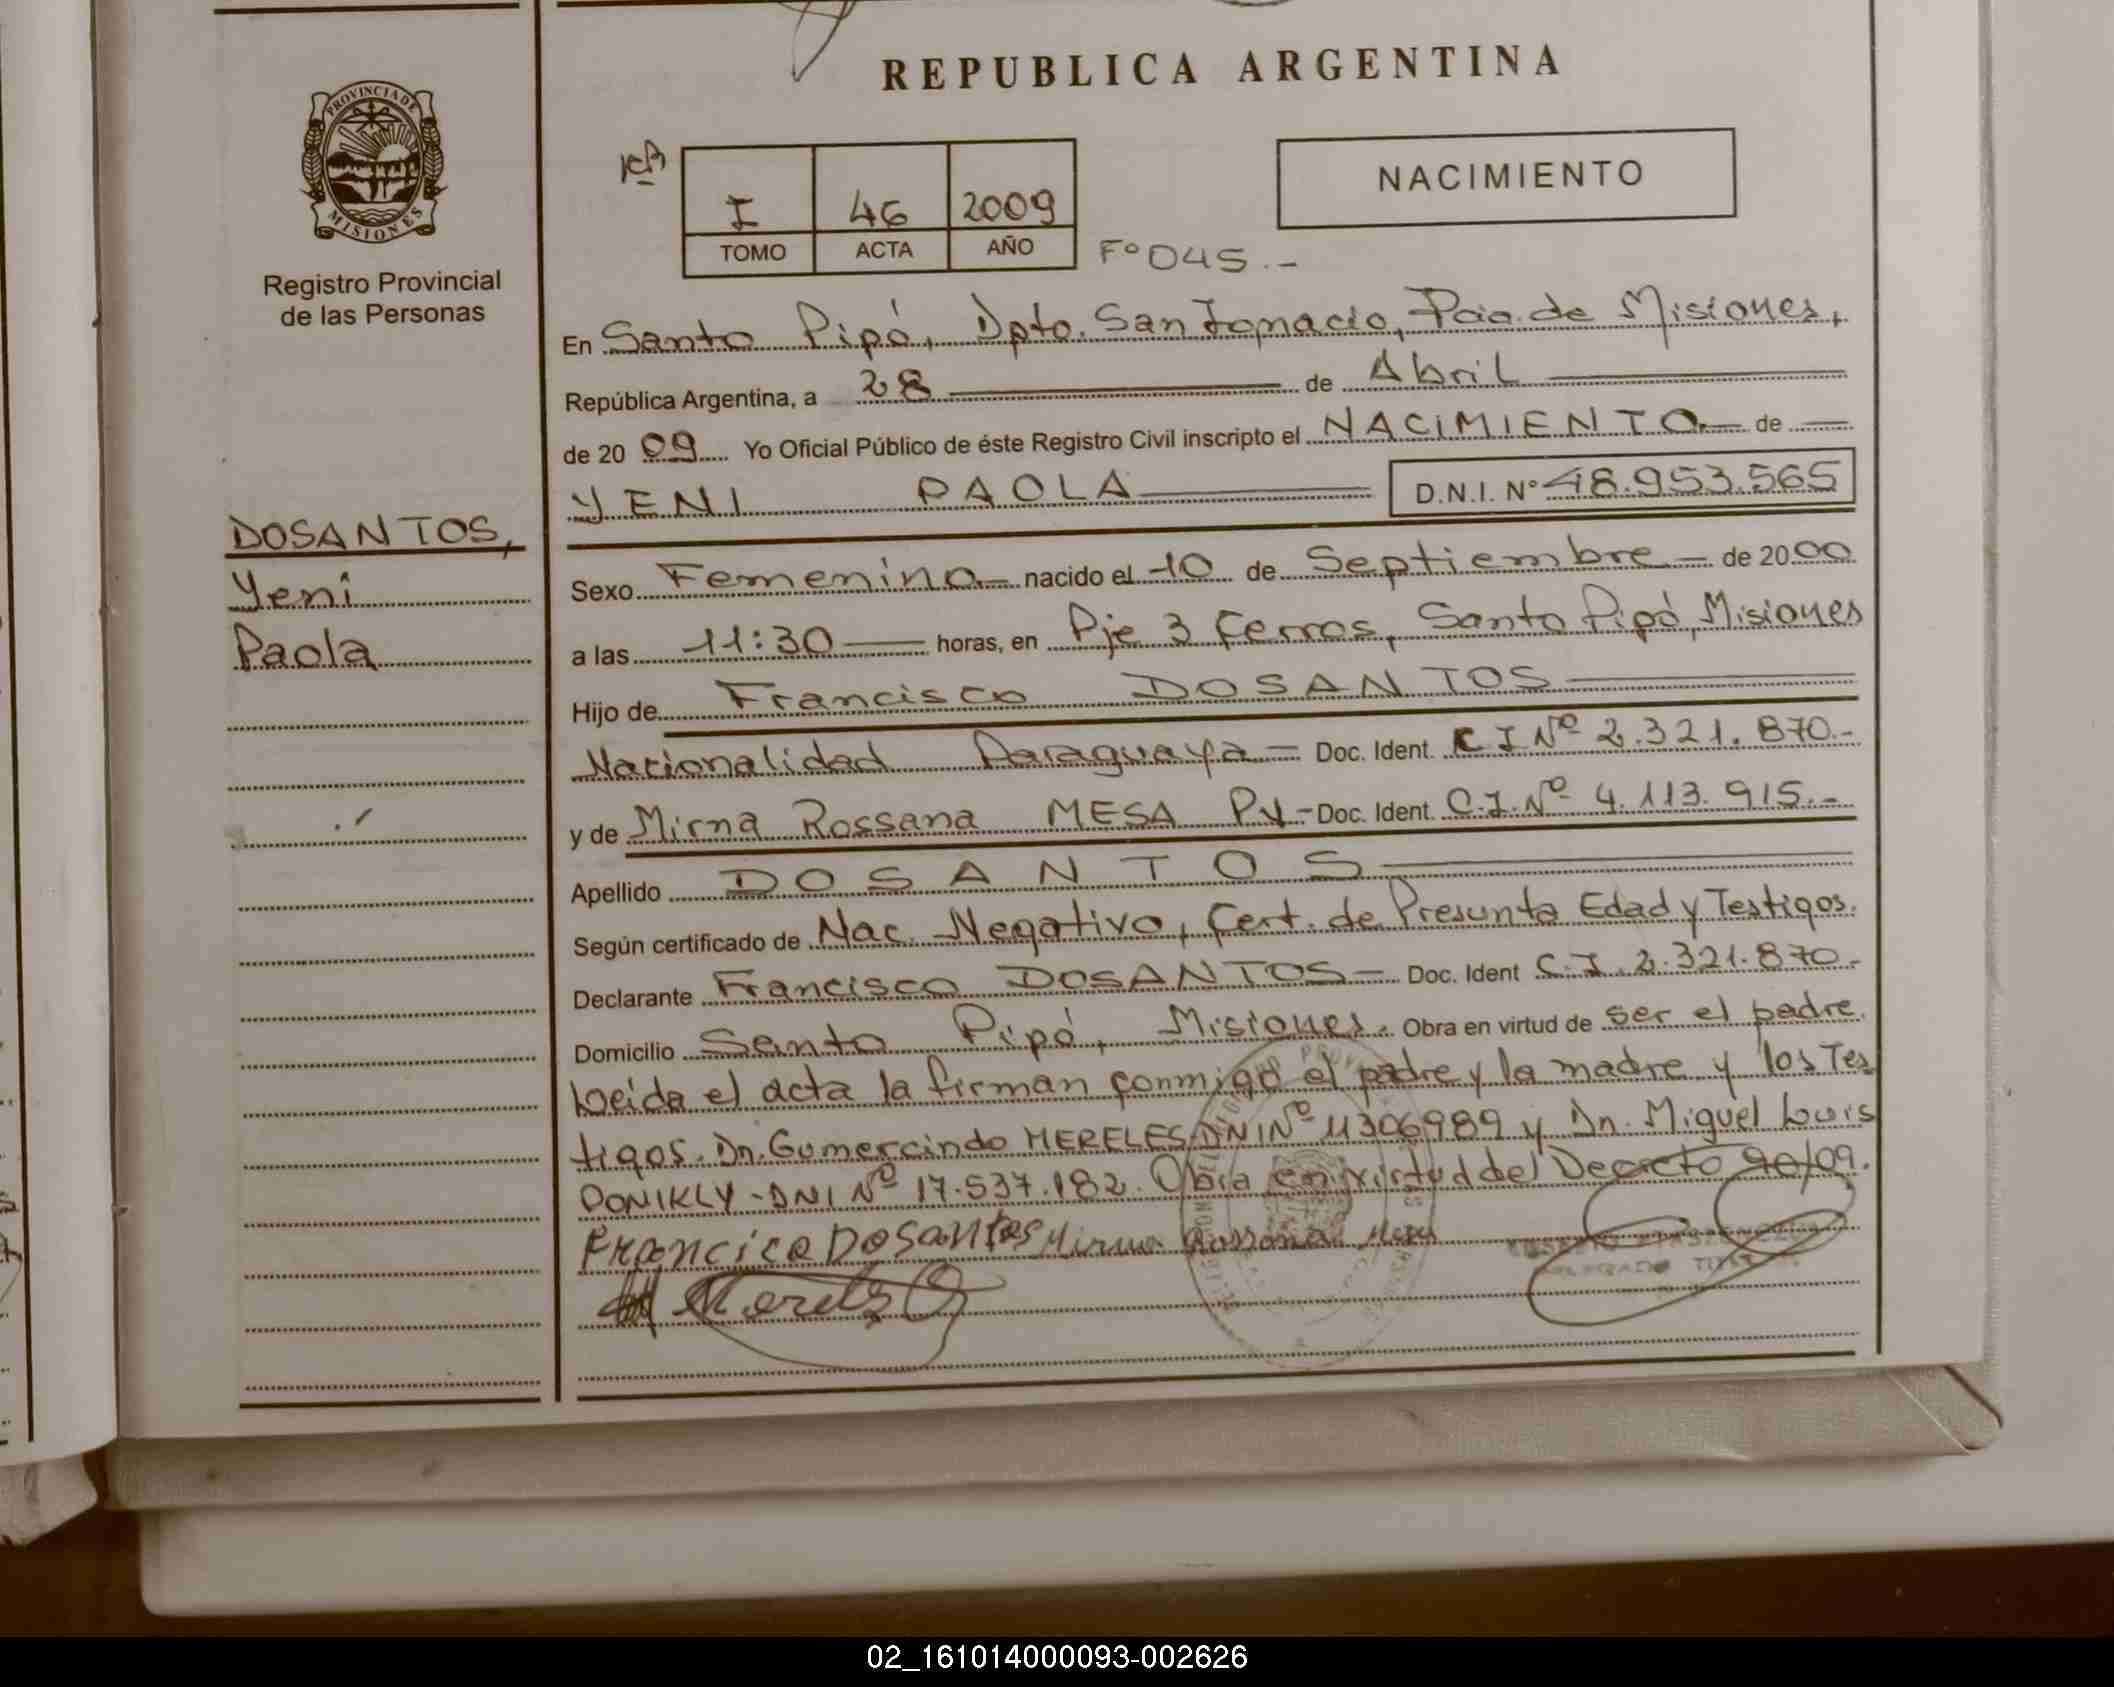 REPUBLICA ARGENTINA
PROVINCIA DE
MISIONES
Registro Provincial
de las Personas
I 46 2009
TOMO ACTA AÑO
Fº 045.-
NACIMIENTO
En Santo Pipó, Dpto. San Ignacio, Pcia. de Misiones,
República Argentina, a 28 de Abril
de 2009 Yo Oficial Público de éste Registro Civil inscripto el NACIMIENTO de
YENI PAOLA D.N.I. Nº 48.953.565
DOSANTOS,
Yeni
Paola
Sexo Femenino nacido el 10 de Septiembre de 2000
a las 11:30 horas, en Pje 3 Cerros, Santo Pipó, Misiones
Hijo de Francisco DOSANTOS
Nacionalidad Paraguaya Doc. Ident. C I Nº 2.321.870.-
y de Mirna Rossana MESA Py - Doc. Ident. C.I. Nº 4.113.915.-
Apellido DOSANTOS
Según certificado de Nac. Negativo, Cert. de Presunta Edad y Testigos.
Declarante Francisco DOSANTOS Doc. Ident C.I. 2.321.870.-
Domicilio Santo Pipó, Misiones. Obra en virtud de ser el padre.
Leida el acta la firman conmigo el padre y la madre y los Tes
tigos. Dn. Gumercindo MERELES DNI Nº 11306989 y Dn. Miguel Luis
DONIKLY - DNI Nº 17.537.182. Obra en virtud del Decreto 90/09.
Francico Dosantos Mirna Rossana Mesa
02_161014000093-002626